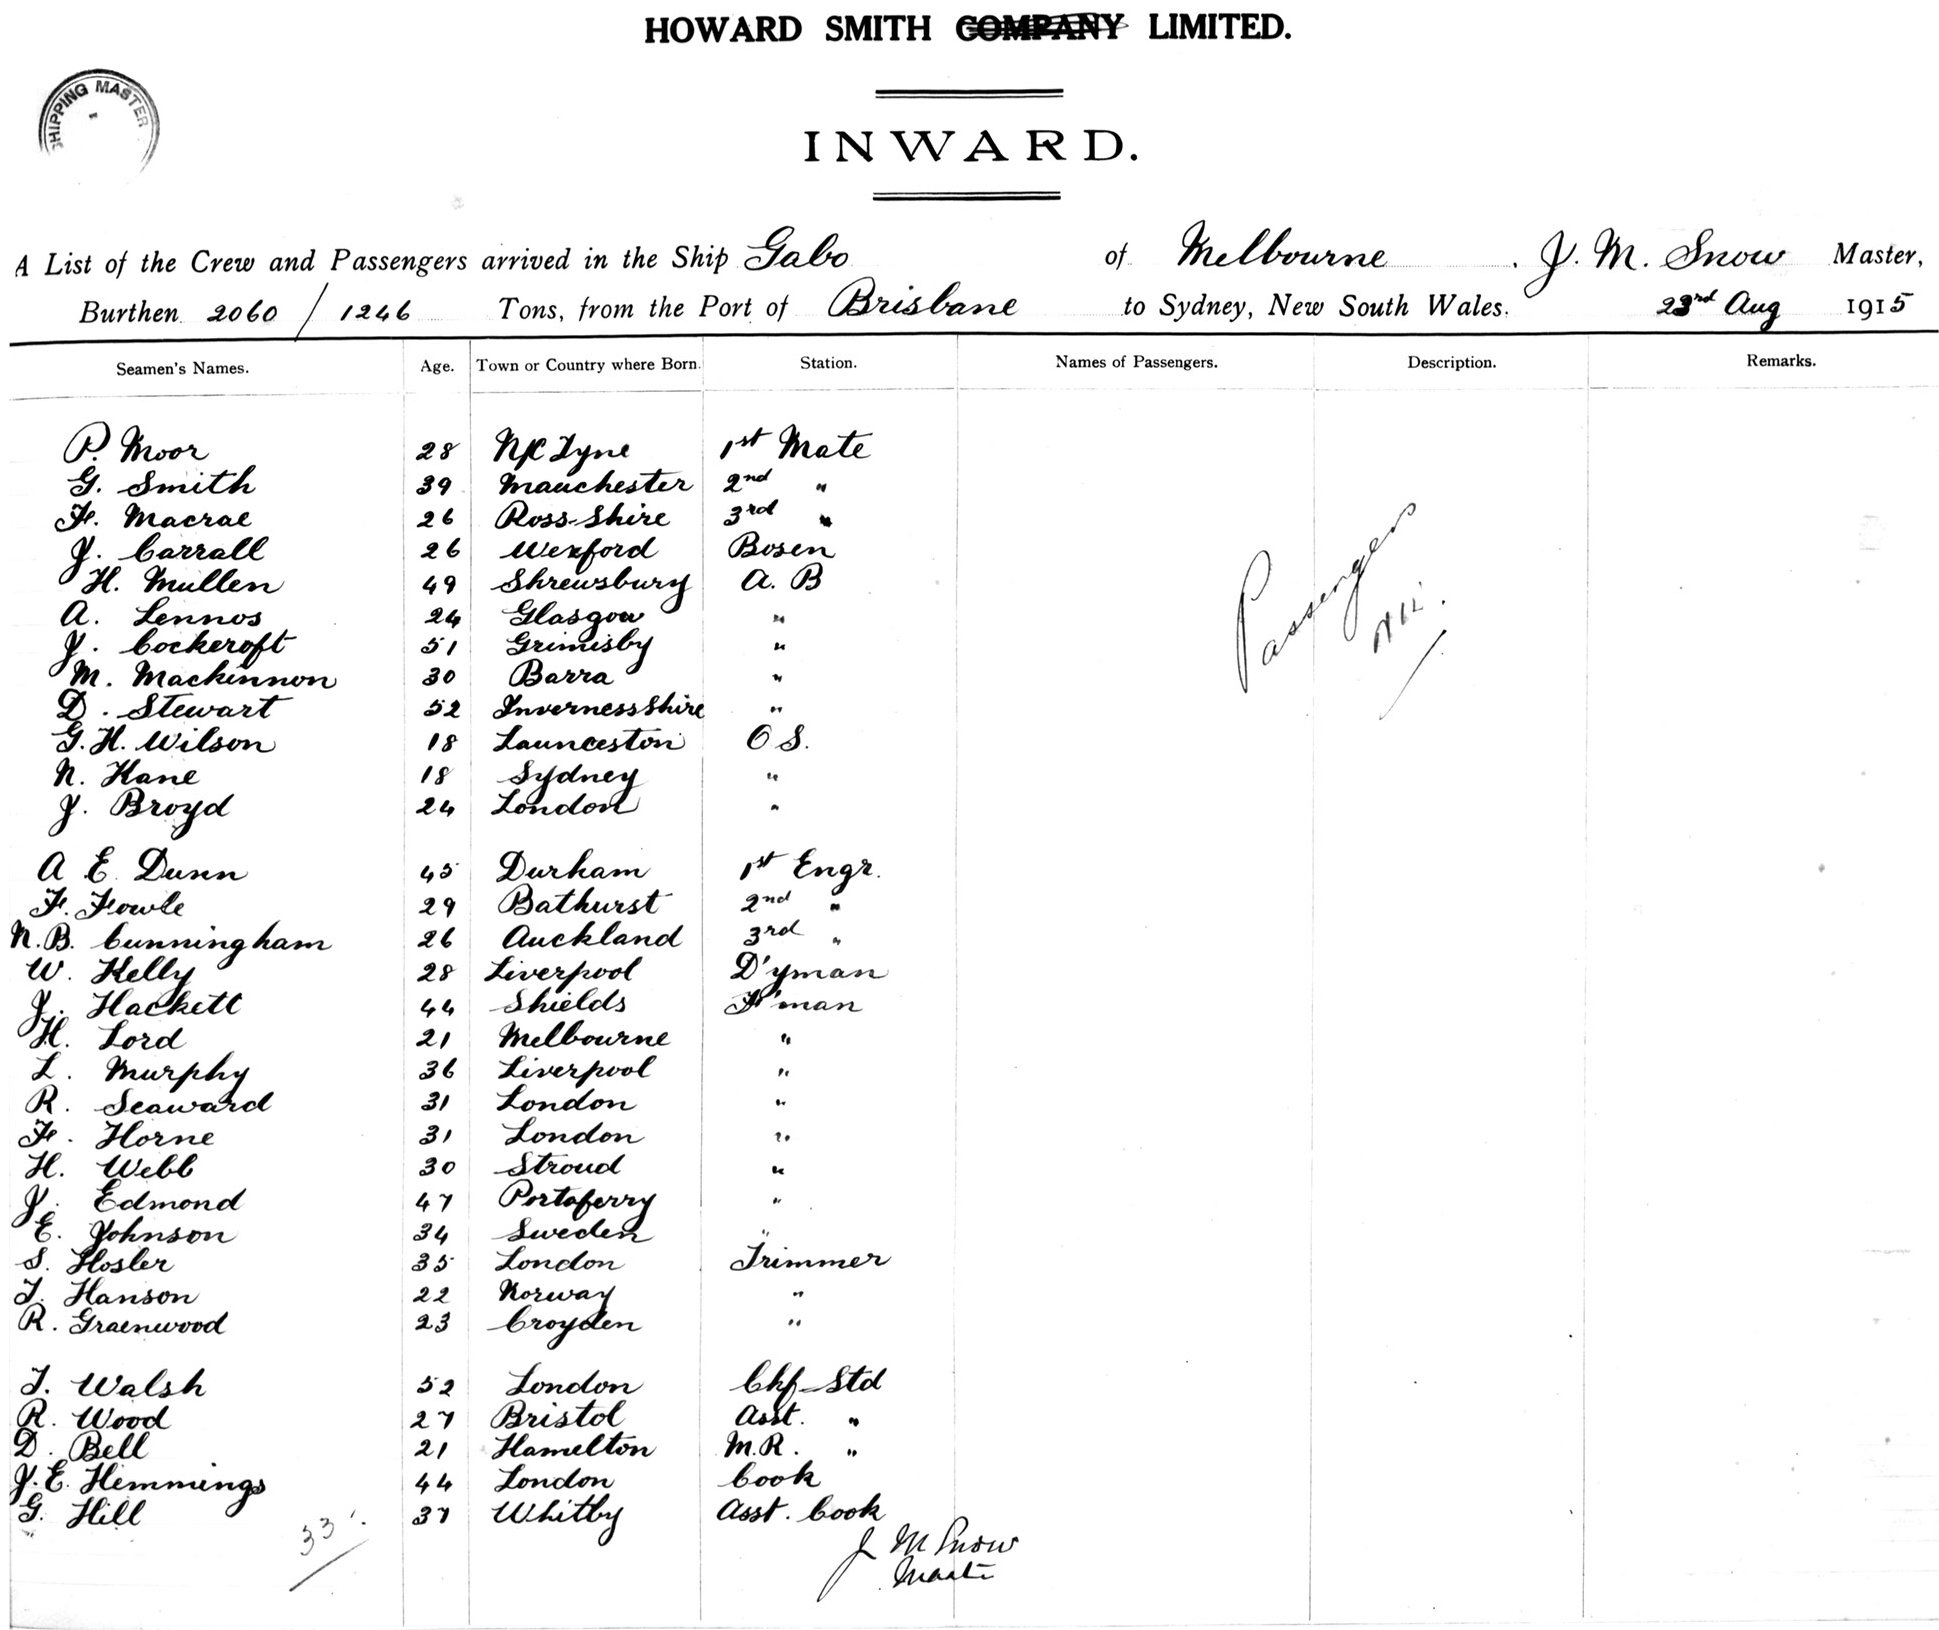 HOWARD SMITH COMPANY LIMITED.
SHIPPING MASTER
INWARD.
A List of the Crew and Passengers arrived in the Ship Gabo of Melbourne. J. M. Snow Master,
Burthen 2060 / 1246 Tons, from the Port of Brisbane to Sydney, New South Wales. 23rd Aug 1915
Seamen's Names. Age. Town or Country where Born. Station. Names of Passengers. Description. Remarks.
P. Moor 28 N/C Tyne 1st Mate
G. Smith 39 Manchester 2nd "
F. Macrae 26 Ross-Shire 3rd "
J. Carrall 26 Wexford Bosen
H. Mullen 49 Shrewsbury A. B
A. Lennos 24 Glasgow "
J. Cockeroft 51 Grimisby "
M. Mackinnon 30 Barra "
D. Stewart 52 Inverness Shire "
G. H. Wilson 18 Launceston O S.
N. Kane 18 Sydney "
J. Broyd 24 London "
Passengers
Nil.
A E. Dunn 45 Durham 1st Engr.
F. Fowle 29 Bathurst 2nd "
N. B. Cunningham 26 Auckland 3rd "
W. Kelly 28 Liverpool D'yman
J. Hackett 44 Shields F'man
H. Lord 21 Melbourne "
L. Murphy 36 Liverpool "
R. Seaward 31 London "
F. Horne 31 London "
H. Webb 30 Stroud "
J. Edmond 47 Portaferry "
E. Johnson 34 Sweden "
S. Hosler 35 London Trimmer
T. Hanson 22 Norway "
R. Graenwood 23 Croyden "
T. Walsh 52 London Chf Std
R. Wood 27 Bristol Asst. "
D. Bell 21 Hamelton M.R. "
J. E. Hemmings 44 London Cook
G. Hill 37 Whitby Asst. Cook
33
J M Snow
Master